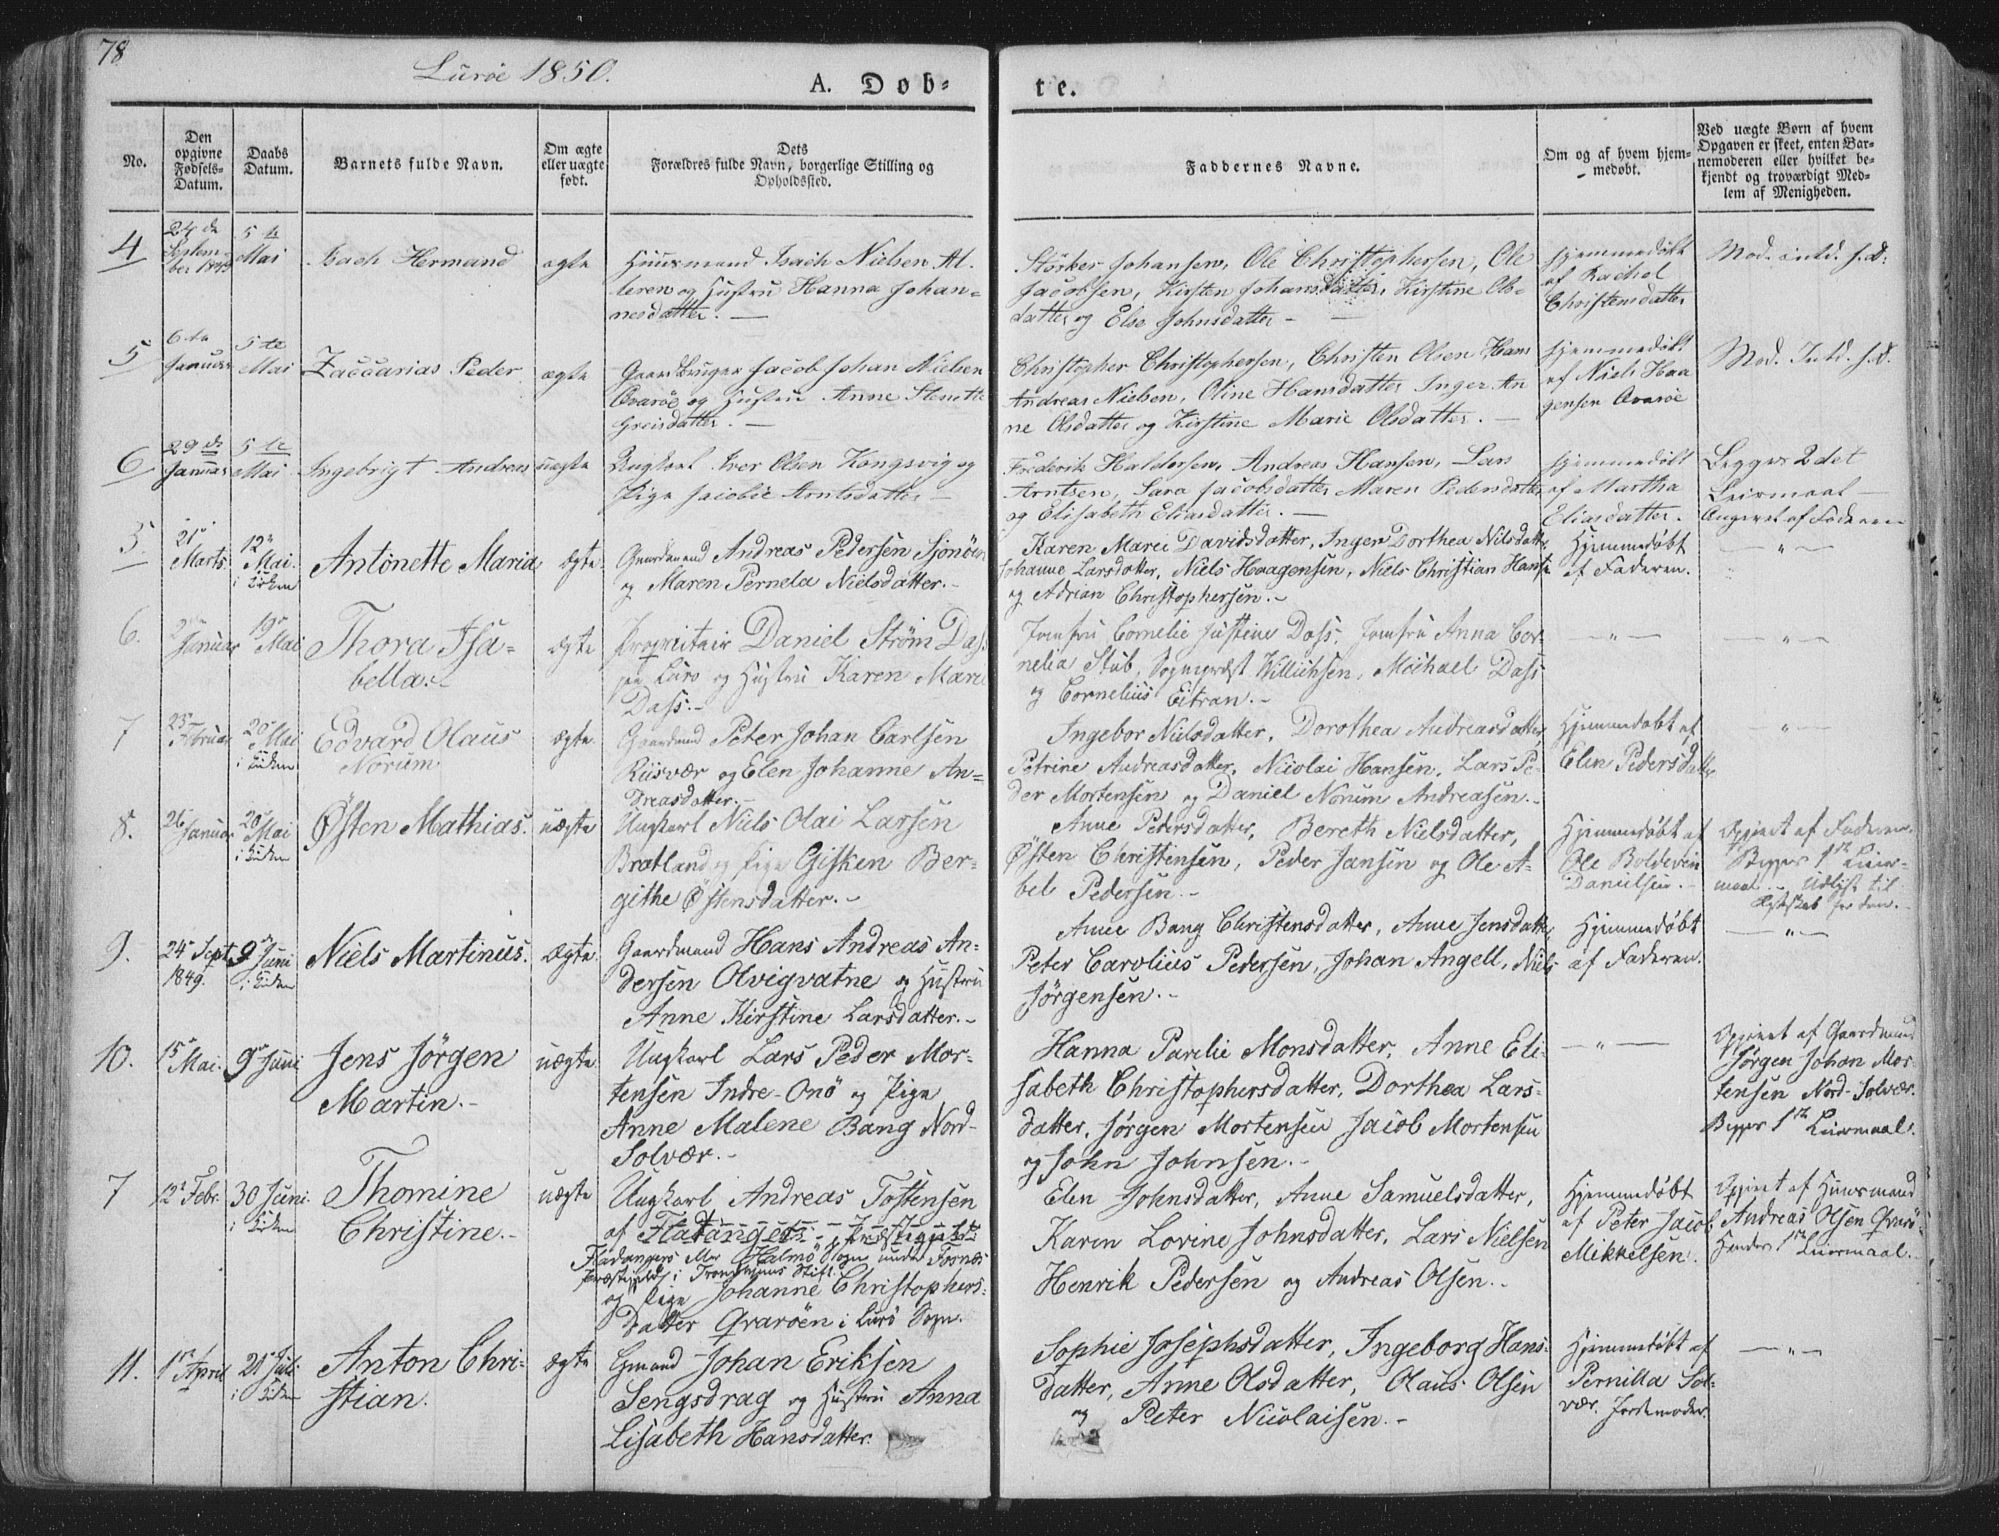 78
Lurøe 1850.
A. Døb-
te.
No.
Den opgivne Fødsels-Datum.
Daabs Datum.
Barnets fulde Navn.
Om ægte eller uægte født.
Dets Forældres fulde Navn, borgerlige Stilling og Opholdssted.
Faddernes Navne.
Om og af hvem hjem-medøbt.
Ved uægte Børn af hvem Opgaven er skeet, enten Bar-nemoderen eller hvilket be-kjendt og troværdigt Med-lem af Menigheden.
4
24de Septem-ber 1849
5te Mai
Isach Hermand
ægte
Huusmand Isach Nielsen Al-
leren og Hustru Hanna Johan-
nesdatter. —
Størker Johansen, Ole Christophersen, Ole
Jacobsen, Kirsten Johansdatter, Kirstine Ols-
datter og Else Johnsdatter —
Hjemmedøbt
af Rachel
Christensdatter
Mod. intd. s. d.
5
6te Januar
5te Mai
Zaccarias Peder
ægte
Gaardbruger Jacob Johan Nielsen
Qvarøe og Hustru Anne Stenette
Greisdatter. —
Christopher Christophersen, Christen Olsen Hans
Andreas Nielsen, Oline Hansdatter Inger An
ne Olsdatter og Kirstine Marie Olsdatter. —
Hjemmedøbt
af Niels Haa
gensen Qvarøe
Mod. Intd. s. d.
6
29de Januar
5te Mai
Ingebrigt Andreas
uægte
Ungkarl Iver Olsen Kongsvig og
Pige Jacobie Arntsdatter —
Frederik Haldorsen, Andreas Hansen, Lars
Arntsen, Sara Jacobsdatter Maren Pedersdatter
og Elisabeth Eliasdatter. —
Hjemmedøbt
af Martha
Eliasdatter.
Begges 2det
Leiermaal —
Angivet af Faderen
5
21 Marts.
12 Mai. i Kirken
Antonette Maria
ægte
Gaardmand Andreas Pedersen Sjonøen
og Maren Pernela Nielsdatter. -
Karen Marei Davidsdatter, Inger Dorthea Nilsdatter
Johanne Larsdatter, Niels Haagensen, Niels Christian Hansen
og Adrian Christophersen. -
Hjemmedøbt
af Faderen.
— " —
6.
Januar
19 Mai
Thora Isa-
bella. -
ægte
Proprietair Daniel Strøm Dass
paa Lurø og Hustru Karen Marie
Dass. -
Jomfru Cornelie Justine Dass, Jomfru Anna Cor-
nelia Stub, Sognepræst Willichsen, Michael Dass
og Cornelius Eitran. -
— " —
— " —
7
23 Februar
20 Mai i Kirken
Edvard Olaus
Norum
ægte
Gaardmd Peter Johan Carlsen
Riisvær og Elen Johanne An-
dreasdatter. -
Ingebor Nielsdatter, Dorothea Andreasdatter,
Petrine Andreasdatter, Nicolai Hansen, Lars Pe-
der Mortensen og Daniel Norum Andreasen. -
Hjemmedøbt af
Elen Pedersdatter
— " —
8.
26 Januar
20 Mai i Kirken
Østen Mathias.
uægte
Ungkarl Niels Olai Larsen
Bratland og Pige Gisken Ber-
githe Østensdatter. -
Anne Pedersdatter, Bereth Nielsdatter,
Østen Christensen, Peder Jansen og Ole A-
bel Pedersen. -
Hjemmedøbt af
Ole Boldevin
Danielsen. -
Opgivet af Faderen.
Begges 1ste Leier-
maal. -
9.
24 Sept 1849.
9 Juni i Kirken
Niels Martinus.
ægte
Gaardmand Hans Andreas An-
dersen Olvigvatne og Hustru
Anne Kirstine Larsdatter. -
Anne Bang Christensdatter, Anne Jensdatter
Peter Carolius Pedersen, Johan Angell, Niels
Jørgensen. -
Hjemmedøbt
af Faderen.
— " —
10.
15 Mai.
9 Juni
Jens Jørgen
Martin. -
uægte
Ungkarl Lars Peder Mor-
tensen Indre-Onø og Pige
Anne Malene Bang Nord-
Solvær. -
Hanna Parelie Monsdatter, Anne Eli-
sabeth Christophersdatter, Dorthea Lars-
datter, Jørgen Mortensen Jacob Mortensen
og John Johnsen. -
— " —
Opgivet af Gaardmand
Jørgen Johan Mor-
tensen Nord-Solvær.
Begges 1ste Leiermaal.
7
12 Febr.
30 Juni. i Kirken
Thomine
Christine. -
uægte
Ungkarl Andreas Tostensen
af Flatanger
Fladangers Halmø Sogn under Fosnæs
Præstegjeld i Tronhjems Stift.
og Pige Johanne Christophers-
datter Qvarøen i Lurø Sogn.
Elen Johnsdatter, Anne Samuelsdatter,
Karen Lovine Johnsdatter, Lars Nielsen
Henrik Pedersen og Andreas Olsen. -
Hjemmedøbt
af Peter Jacob
Mikkelsen.
Opgivet af Huusmand
Andreas Olsen Qvarø-
Hendes 1ste Leiermaal. -
11.
1 April
21 Juli i Kirken
Anton Chri-
stian.
ægte
Gmand Johan Eriksen
Sengsdrag og Hustru Anna
Lisabeth Hansdatter.
Sophie Josephsdatter, Ingeborg Hans-
datter, Anne Olsdatter, Olaus Olsen
og Peter Nicolaisen. -
Hjemmedøbt af
Pernilla Sol-
vær. Jordemoder.
— " —